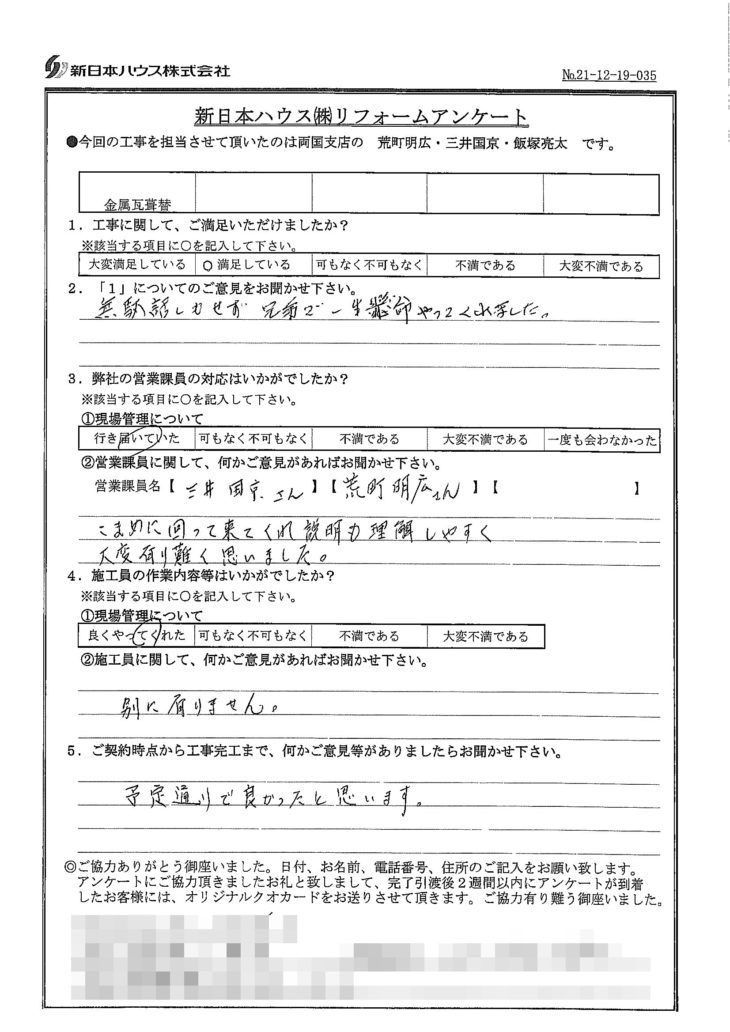 新日本ハウス株式会社
No.21-12-19-035
新日本ハウス㈱リフォームアンケート
●今回の工事を担当させて頂いたのは両国支店の 荒町明広・三井国京・飯塚亮太 です。
金属瓦葺替
1．工事に関して、ご満足いただけましたか？
※該当する項目に○を記入して下さい。
大変満足している ○ 満足している 可もなく不可もなく 不満である 大変不満である
2．「1」についてのご意見をお聞かせ下さい。
無駄話しもせず 兄弟で一生懸命やってくれました。
3．弊社の営業課員の対応はいかがでしたか？
※該当する項目に○を記入して下さい。
①現場管理について
行き届いていた 可もなく不可もなく 不満である 大変不満である 一度も会わなかった
②営業課員に関して、何かご意見があればお聞かせ下さい。
営業課員名【 三井国京さん 】【 荒町明広さん 】【 】
こまめに回って来てくれ説明も理解しやすく
大変有り難く思いました。
4．施工員の作業内容等はいかがでしたか？
※該当する項目に○を記入して下さい。
①現場管理について
良くやってくれた 可もなく不可もなく 不満である 大変不満である
②施工員に関して、何かご意見があればお聞かせ下さい。
別に有りません。
5．ご契約時点から工事完工まで、何かご意見等がありましたらお聞かせ下さい。
予定通りで良かったと思います。
◎ご協力ありがとう御座いました。日付、お名前、電話番号、住所のご記入をお願い致します。
アンケートにご協力頂きましたお礼と致しまして、完了引渡後２週間以内にアンケートが到着
したお客様には、オリジナルクオカードをお送りさせて頂きます。ご協力有り難う御座いました。